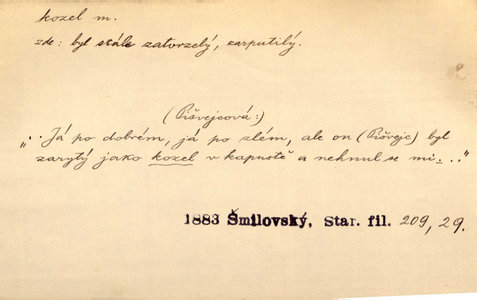 kozel m.
zde: byl stále zatvrzelý, zarputilý.
(Pišvejcová:)
"..Já po dobrém, já po zlém, ale on (Pišvejc) byl
zarytý jako kozel v kapustě a nehnul se mi..."
1883 Šmilovský, Star. fil. 209, 29.